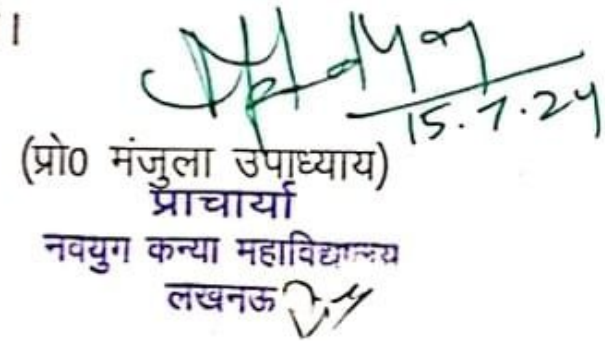 ।
15.7.24
(प्रो0 मंजुला उपाध्याय)
प्राचार्या
नवयुग कन्या महाविद्यालय
लखनऊ